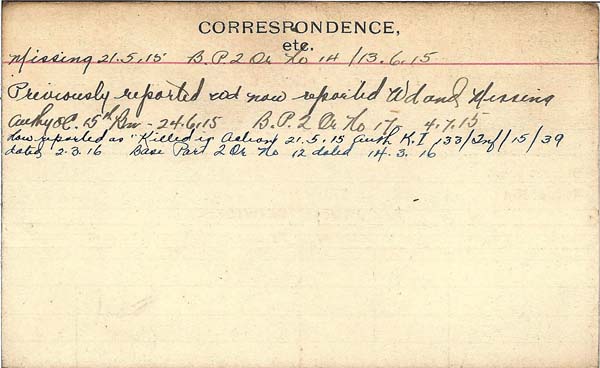 CORRESPONDENCE,
etc.
Missing 21.5.15 B.P.2 Or No 14/13.6.15
Previously reported wd now reported Wd and Missing
Authy OC. 15th Bn - 24.6.15 B.P.2 Or No 17 4.7.15
Now reported as "Killed in Action 21.5.15 Auth K.I. 33/Inf/15/39
dated 2.3.16 Base Part 2 Or No 12 dated 14.3.16